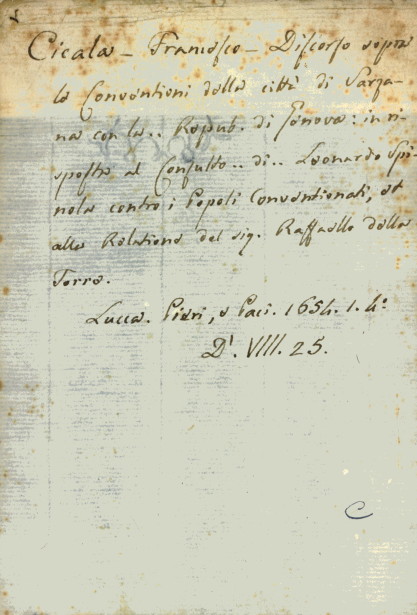 Cicala - Francesco - Discorso sopra
le Conventioni della città di Sarza-
na con la.. Repub. di Genova: in ri-
sposta al Consulto.. di.. Leonardo Spi-
nola contro i Popoli Conventionati, et
alla Relatione del sig. Raffaello della
Torre.
Lucca. Pieri, e Paci. 1654. 1. 4°
D'. VIII. 25.
C